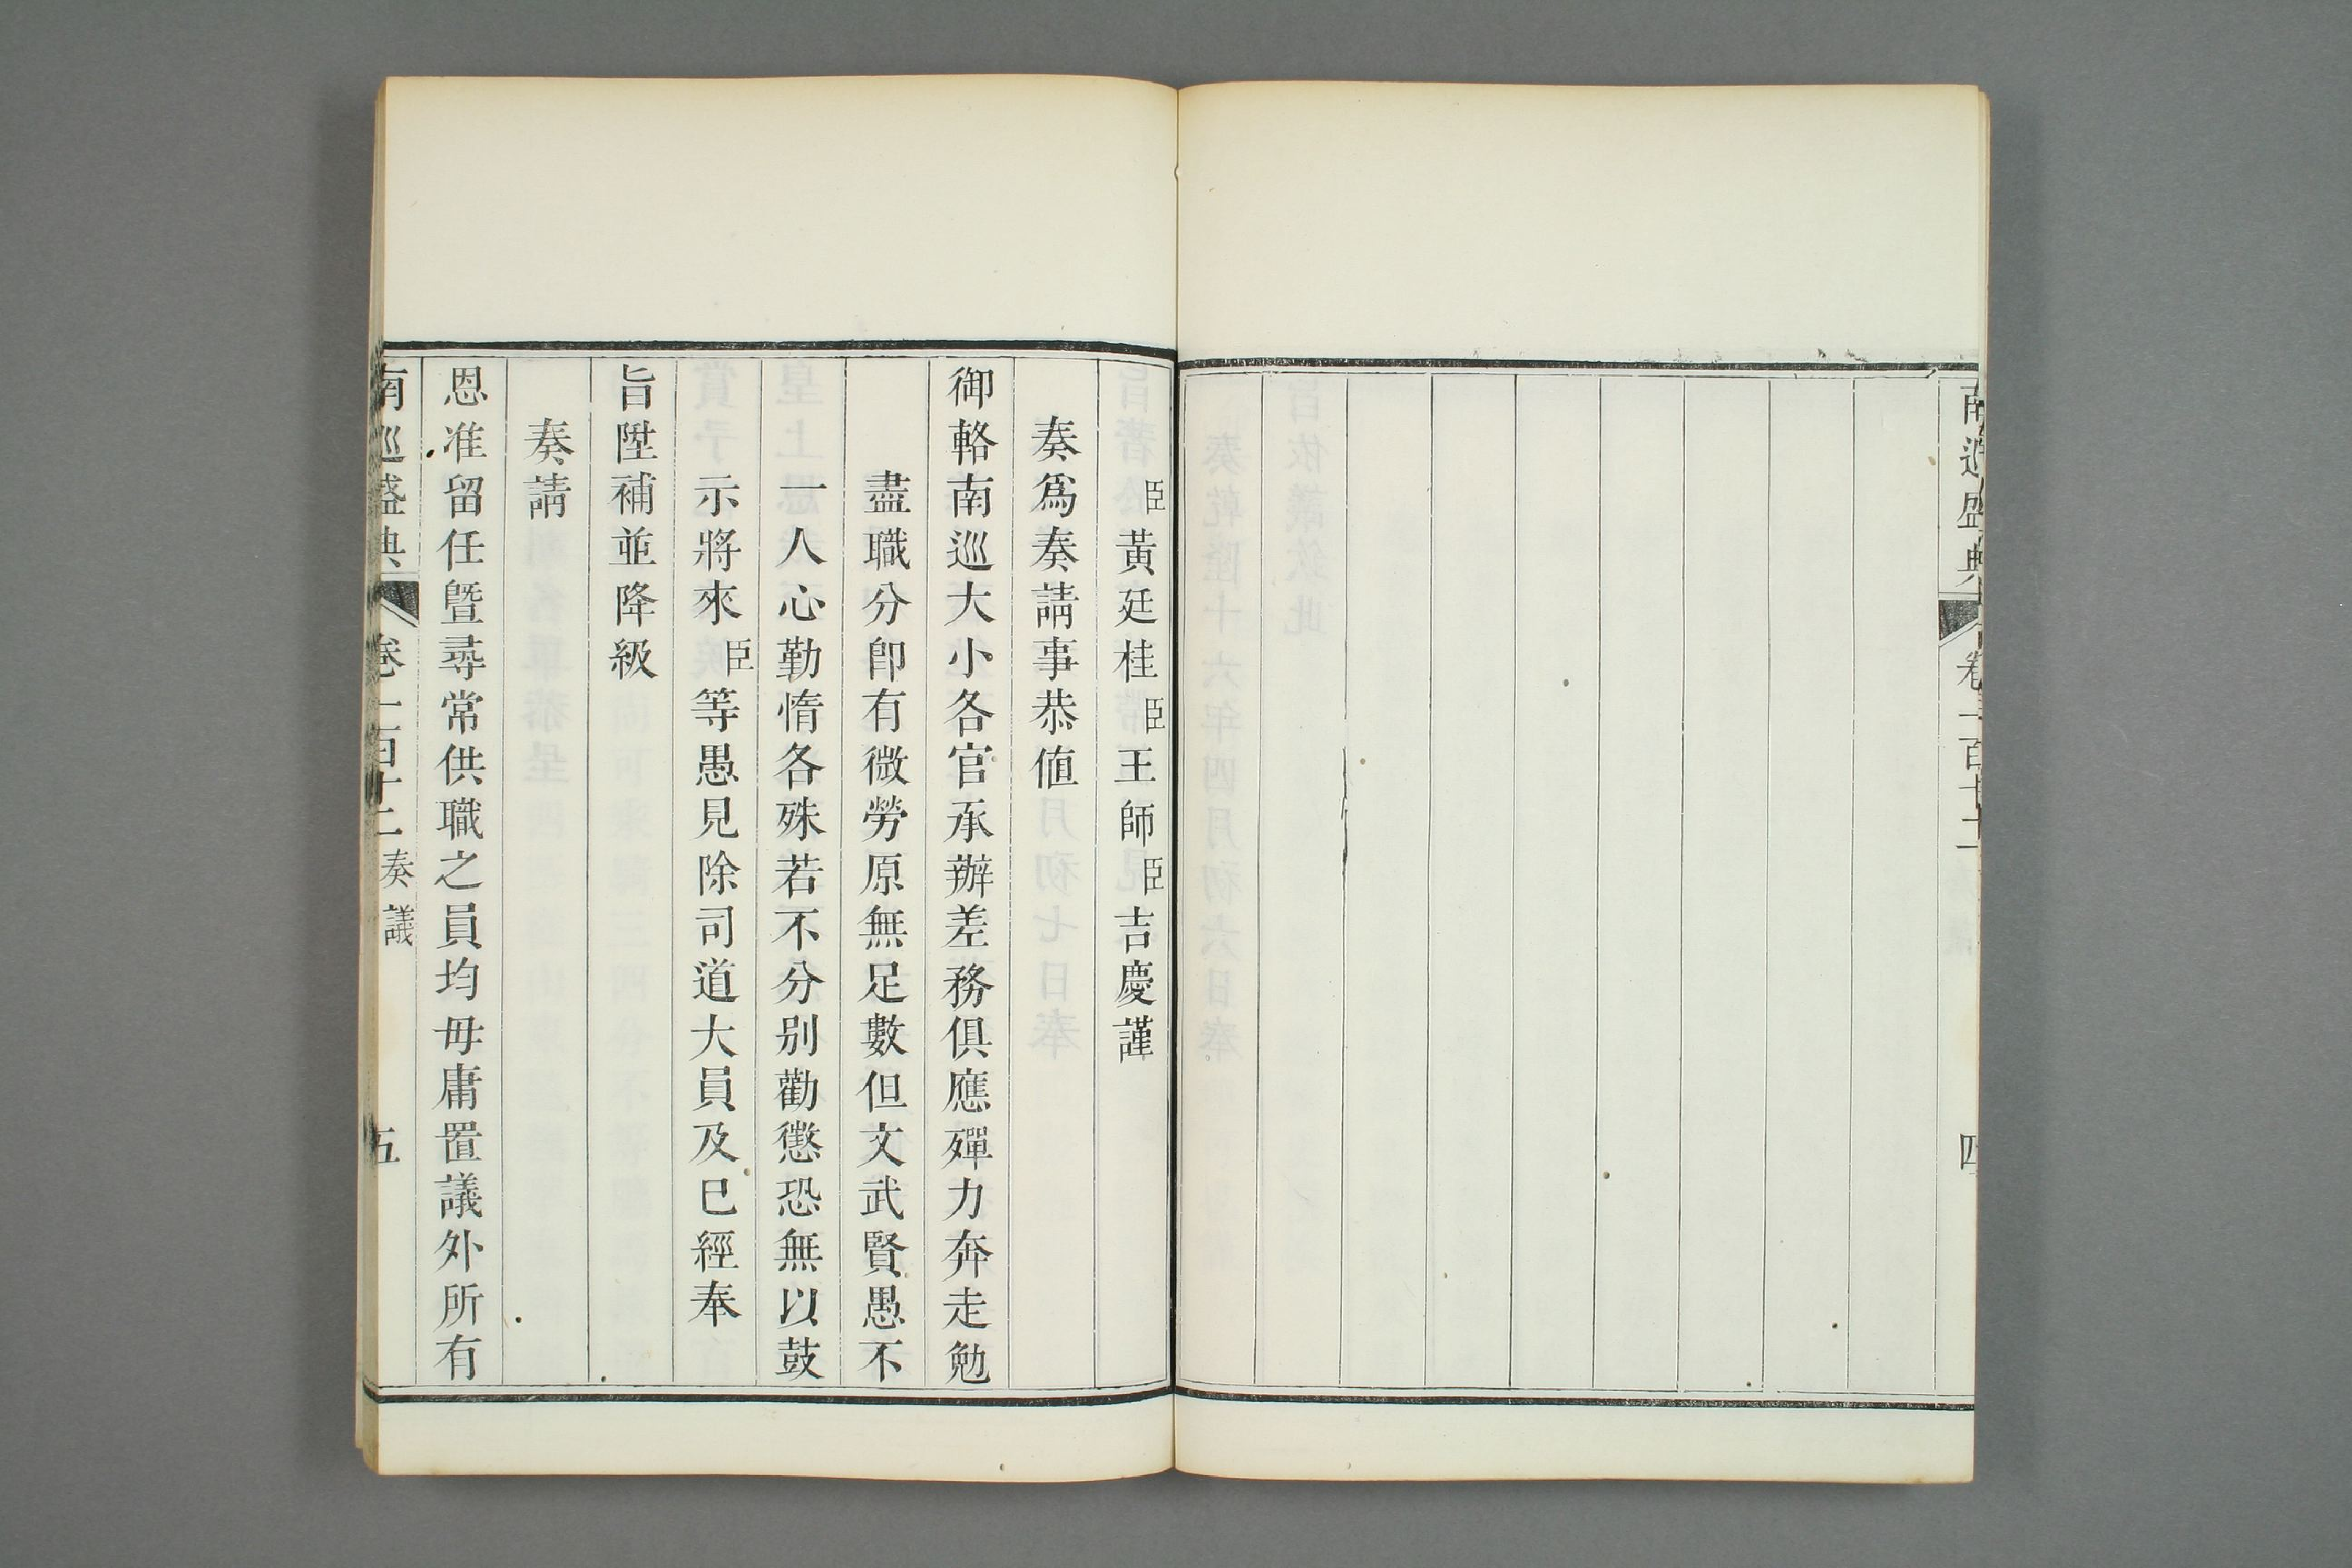 南巡盛典 卷一百十二 四
臣黃廷桂臣王師臣吉慶謹
奏爲奏請事恭値
御輅南巡大小各官承辦差務俱應殫力奔走勉
盡職分卽有微勞原無足數但文武賢愚不
一人心勤惰各殊若不分别勸懲恐無以鼓
示將來臣等愚見除司道大員及巳經奉
旨陞補並降級
奏請
恩准留任曁尋常供職之員均毋庸置議外所有
南巡盛典 卷一百十二 奏議 五